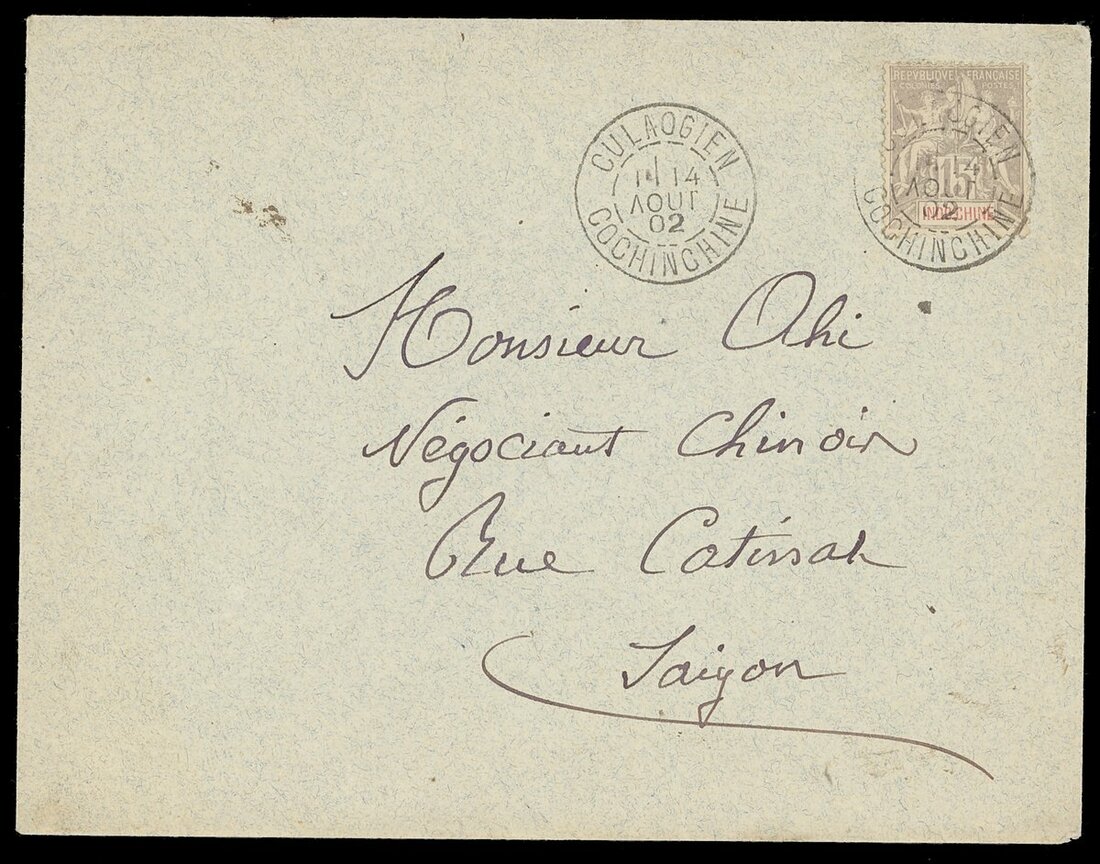 REPUBLIQUE FRANÇAISE
COLONIES POSTES
15
INDOCHINE
CULAOGIEN
14
AOUT
02
COCHINCHINE
OGIEN
14
AOUT
02
COCHINCHINE
Monsieur Ahi
Négociant Chinois
Rue Catinat
Saigon